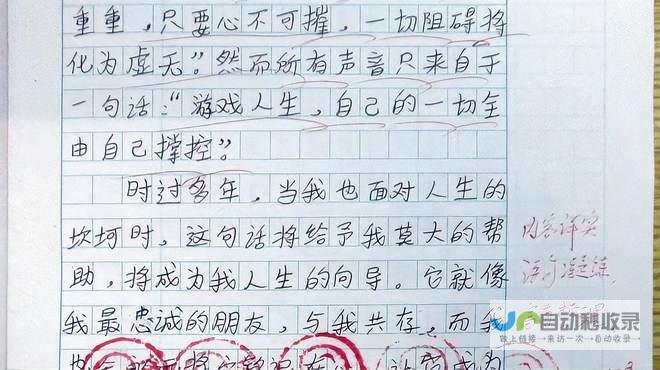 重重，只要心不可摧，一切阻碍将
化为虚无”。然而所有声音只来自于
一句话：“游戏人生，自己的一切全
由自己撑控”。
时过多年，当我也面对人生的
坎坷时，这句话将给予我莫大的帮
助，将成为我人生的向导。它就像
我最忠诚的朋友，与我共存，而我
内容详实
语句凝练
自动秒收录
做上链接→来访一次→自动收录